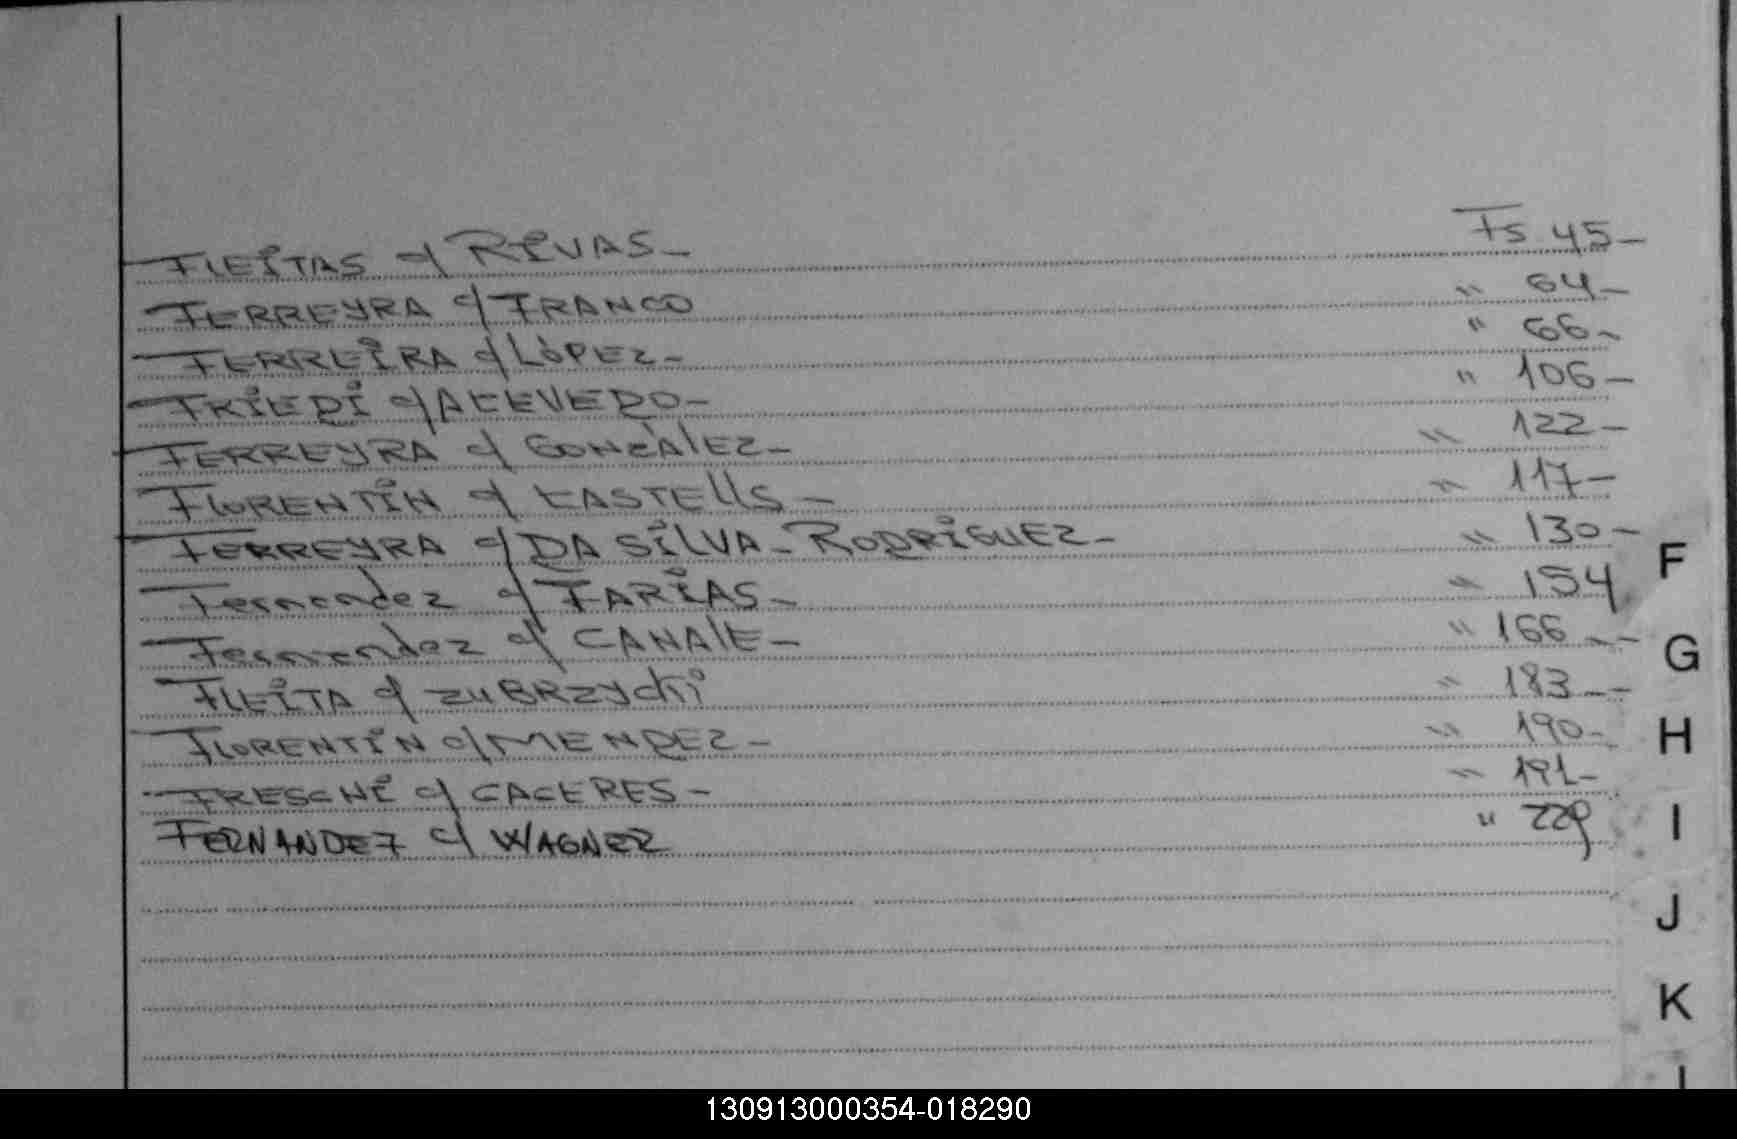 FLEITAS c/ RIVAS - Fs 45 -
FERREYRA c/ FRANCO " 64 -
FERREIRA c/ LÓPEZ - " 66 -
FRIEDI c/ ACEVEDO - " 106 -
FERREYRA c/ GONZÁLEZ - " 122 -
FLORENTÍN c/ CASTELLS - " 117 -
FERREYRA c/ DA SILVA - RODRIGUEZ - " 130 -
Fernandez c/ FARIAS - " 154
Fernandez c/ CANALE - " 166 --
FLEITA c/ ZUBRZYCKI " 183 --
FLORENTÍN c/ MENDEZ - " 190 -
FRESCHI c/ CACERES - " 191 -
FERNANDEZ c/ WAGNER " 229
F
G
H
I
J
K
130913000354-018290